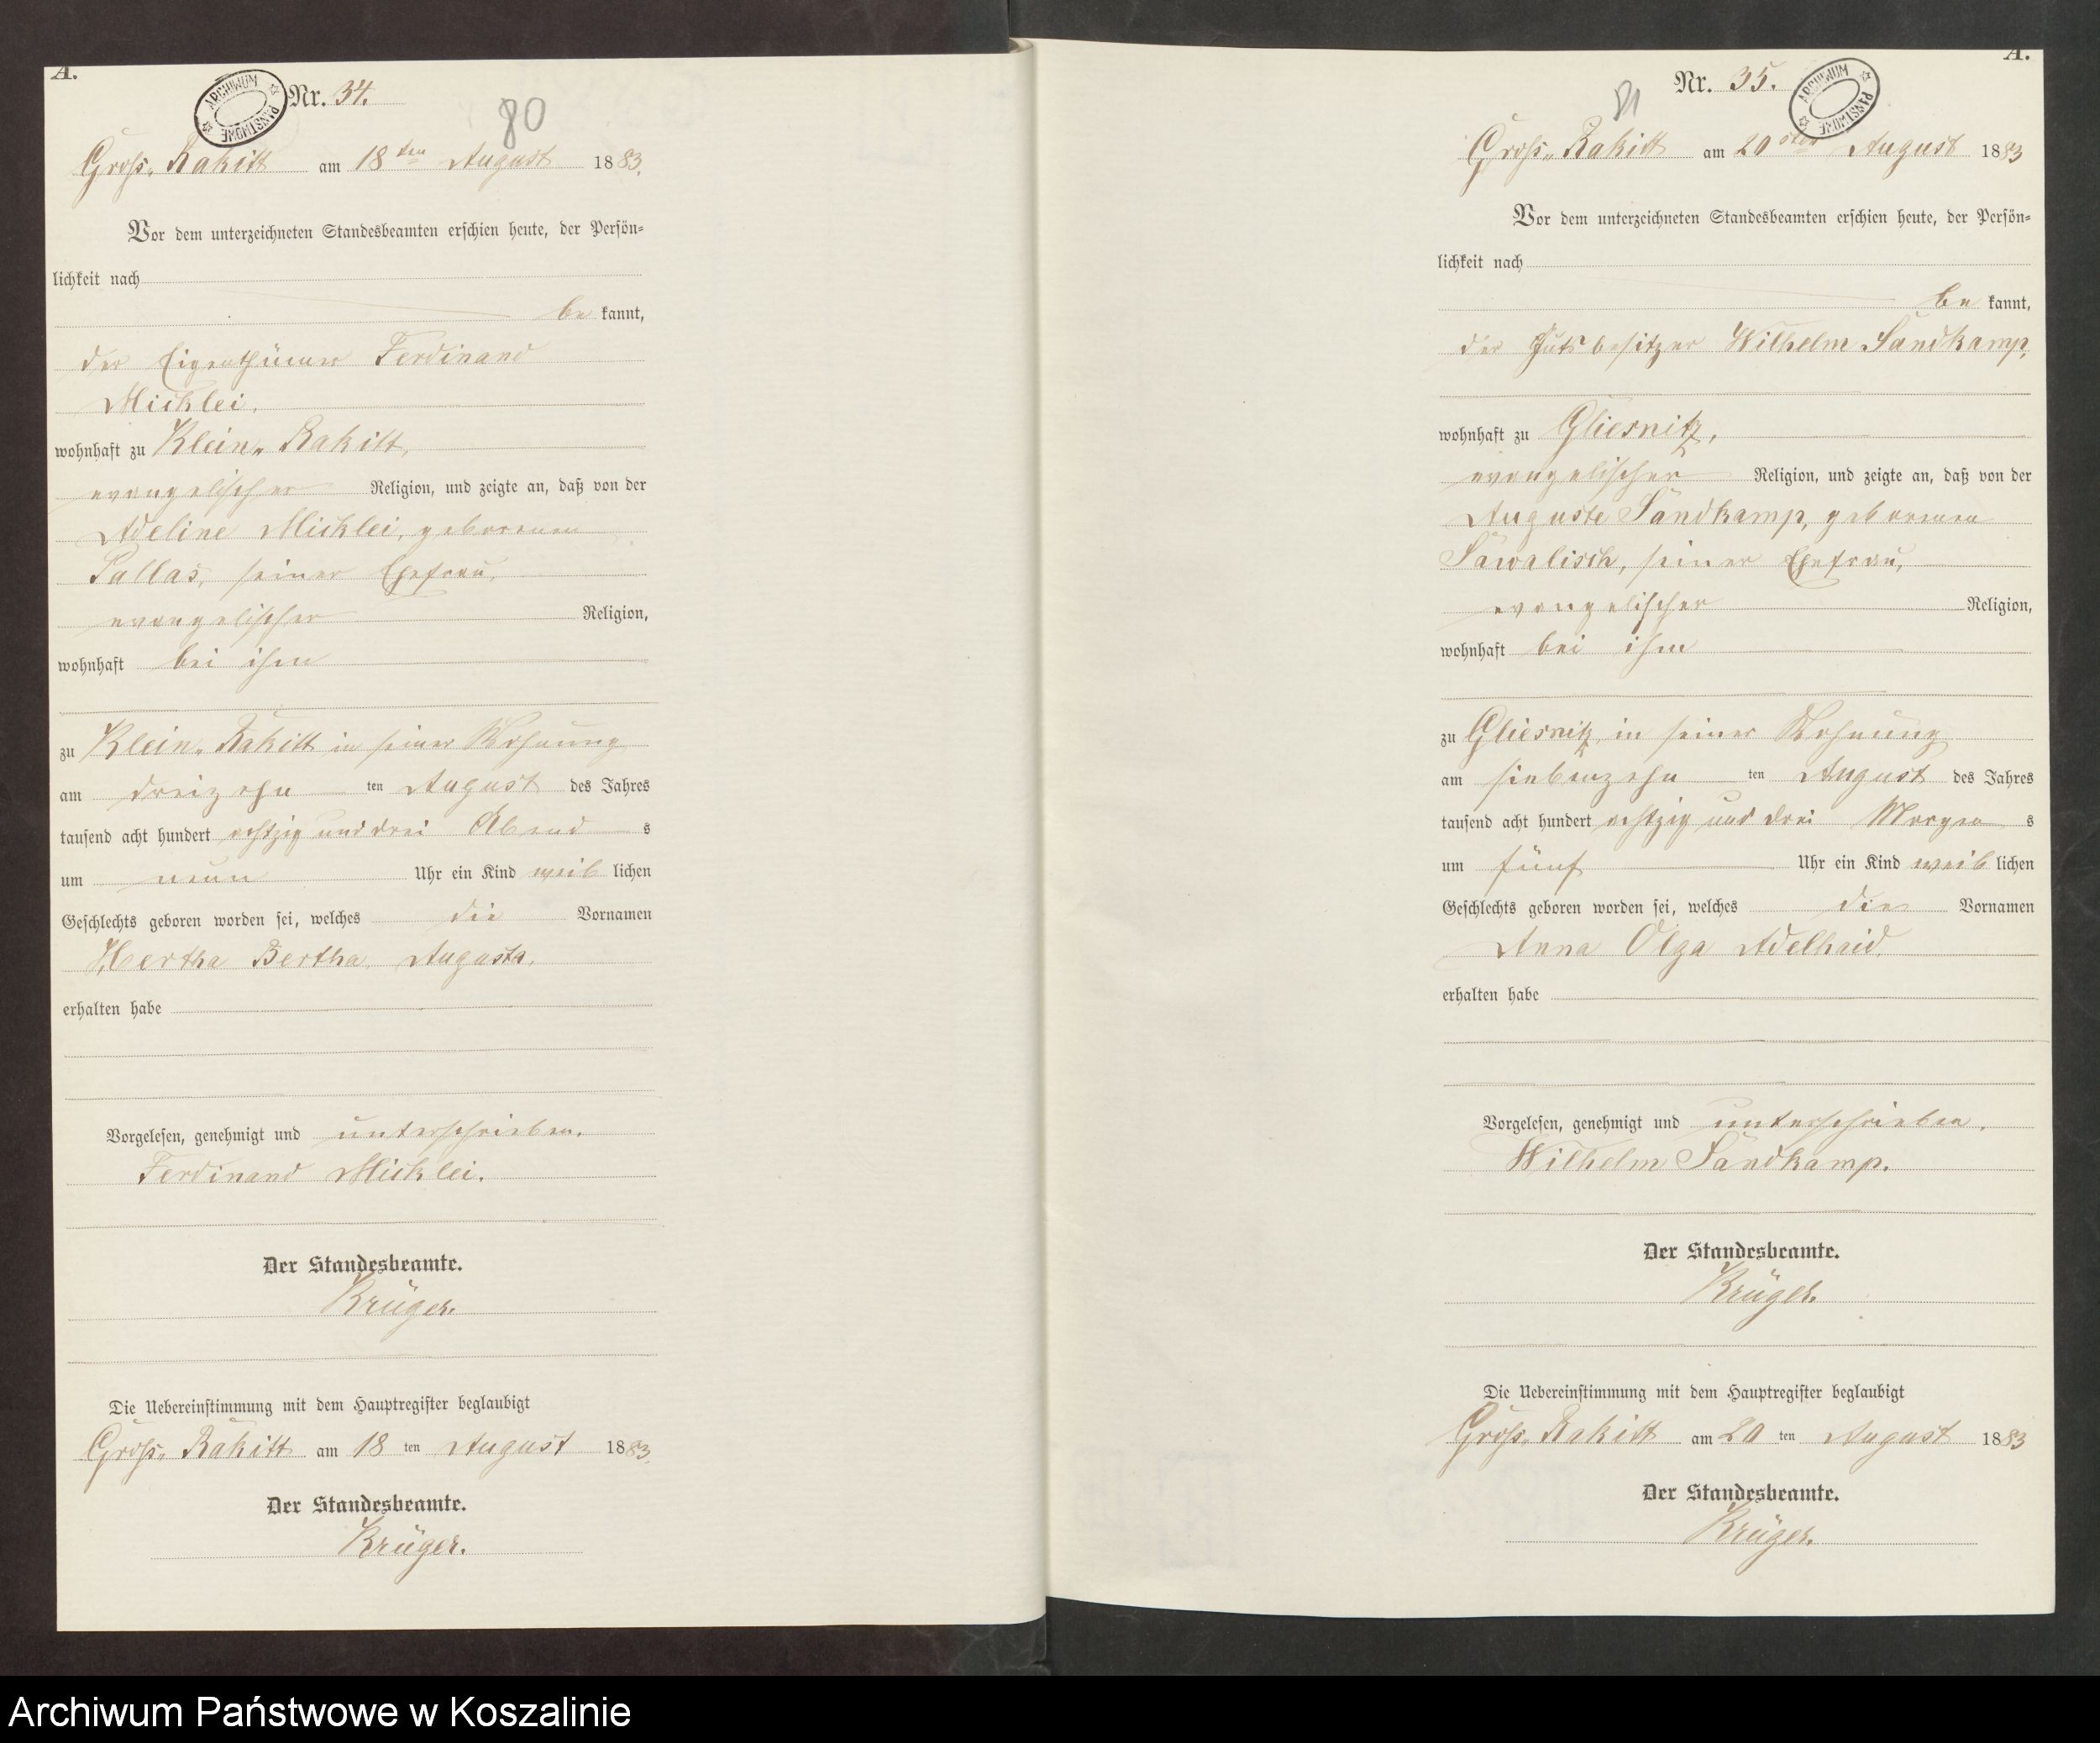 A.
ARCHIWUM PAŃSTWOWE
Nr. 34.
80
Groß. Rakitt am 18 ten August 1883.
Vor dem unterzeichneten Standesbeamten erschien heute, der Persön=
lichkeit nach
be kannt,
der Eigenthümer Ferdinand
Micklei.
wohnhaft zu Klein. Rakitt,
evangelischer Religion, und zeigte an, daß von der
Adeline Micklei, geborenen
Pallas, seiner Ehefrau,
evangelischer Religion,
wohnhaft bei ihm
zu Klein. Rakitt in seiner Wohnung
am dreizehn ten August des Jahres
tausend acht hundert achtzig und drei Abend s
um neun Uhr ein Kind weib lichen
Geschlechts geboren worden sei, welches die Vornamen
Hertha Bertha Auguste.
erhalten habe
Vorgelesen, genehmigt und unterschrieben.
Ferdinand Micklei.
Der Standesbeamte.
Krüger.
Die Uebereinstimmung mit dem Hauptregister beglaubigt
Groß. Rakitt am 18 ten August 1883.
Der Standesbeamte.
Krüger.
A.
ARCHIWUM PAŃSTWOWE
Nr. 35.
81
Groß. Rakitt am 20 sten August 1883
Vor dem unterzeichneten Standesbeamten erschien heute, der Persön=
lichkeit nach
be kannt,
der Gutsbesitzer Wilhelm Sandkamp,
wohnhaft zu Gliesnitz,
evangelischer Religion, und zeigte an, daß von der
Auguste Sandkamp, geborenen
Sawalisch, seiner Ehefrau,
evangelischer Religion,
wohnhaft bei ihm
zu Gliesnitz in seiner Wohnung
am siebenzehn ten August des Jahres
tausend acht hundert achtzig und drei Morgen s
um fünf Uhr ein Kind weib lichen
Geschlechts geboren worden sei, welches die Vornamen
Anna Olga Adelhaid.
erhalten habe
Vorgelesen, genehmigt und unterschrieben.
Wilhelm Sandkamp.
Der Standesbeamte.
Krüger.
Die Uebereinstimmung mit dem Hauptregister beglaubigt
Groß. Rakitt am 20 ten August 1883
Der Standesbeamte.
Krüger.
Archiwum Państwowe w Koszalinie